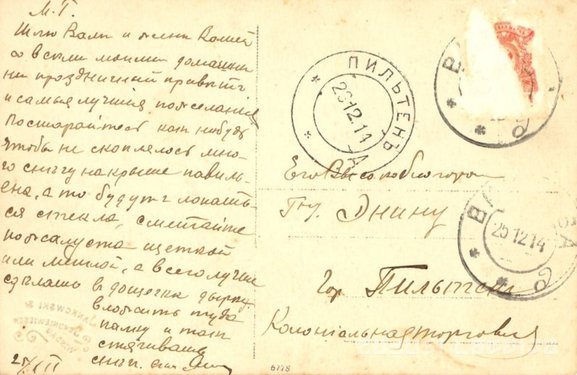 М. Г.
Шлю Вамъ и жене Вашей
со всеми моими домашни
ми праздничный приветъ
и самые лучшія пожеланія
Постарайтесь какъ нибудь
чтобы не скоплялось мно
го снегу на крыше павиль
она, а то будутъ лопать
ся стекла, сметайте
пожалуста щеткой
или метлой, а всего лучше
сделать в дощечке дырку
вложить туда
палку и так
стягивать
снег.
25/XII
ПИЛЬТЕНЪ
26.12.14
А
25.12.14
Его Высокоблагород
Г-ну Энину
Гор. Пильтенъ
Колоніальная торговля
6778